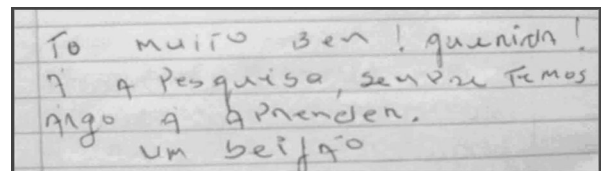 To muito Bem! querida!
A Pesquisa, sempre Temos
Argo a aprender.
um beijão